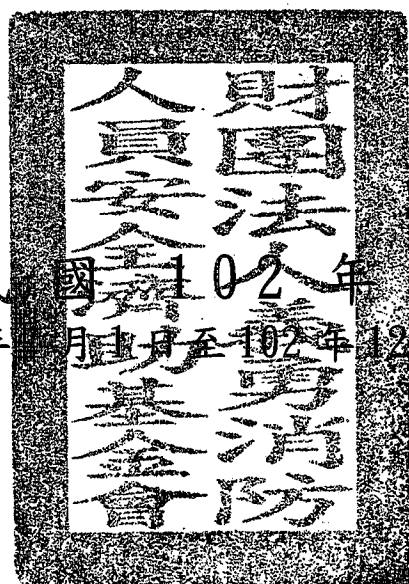 財團法人義勇消防
人員安全濟助基金會
國 102 年
月1日至102年12